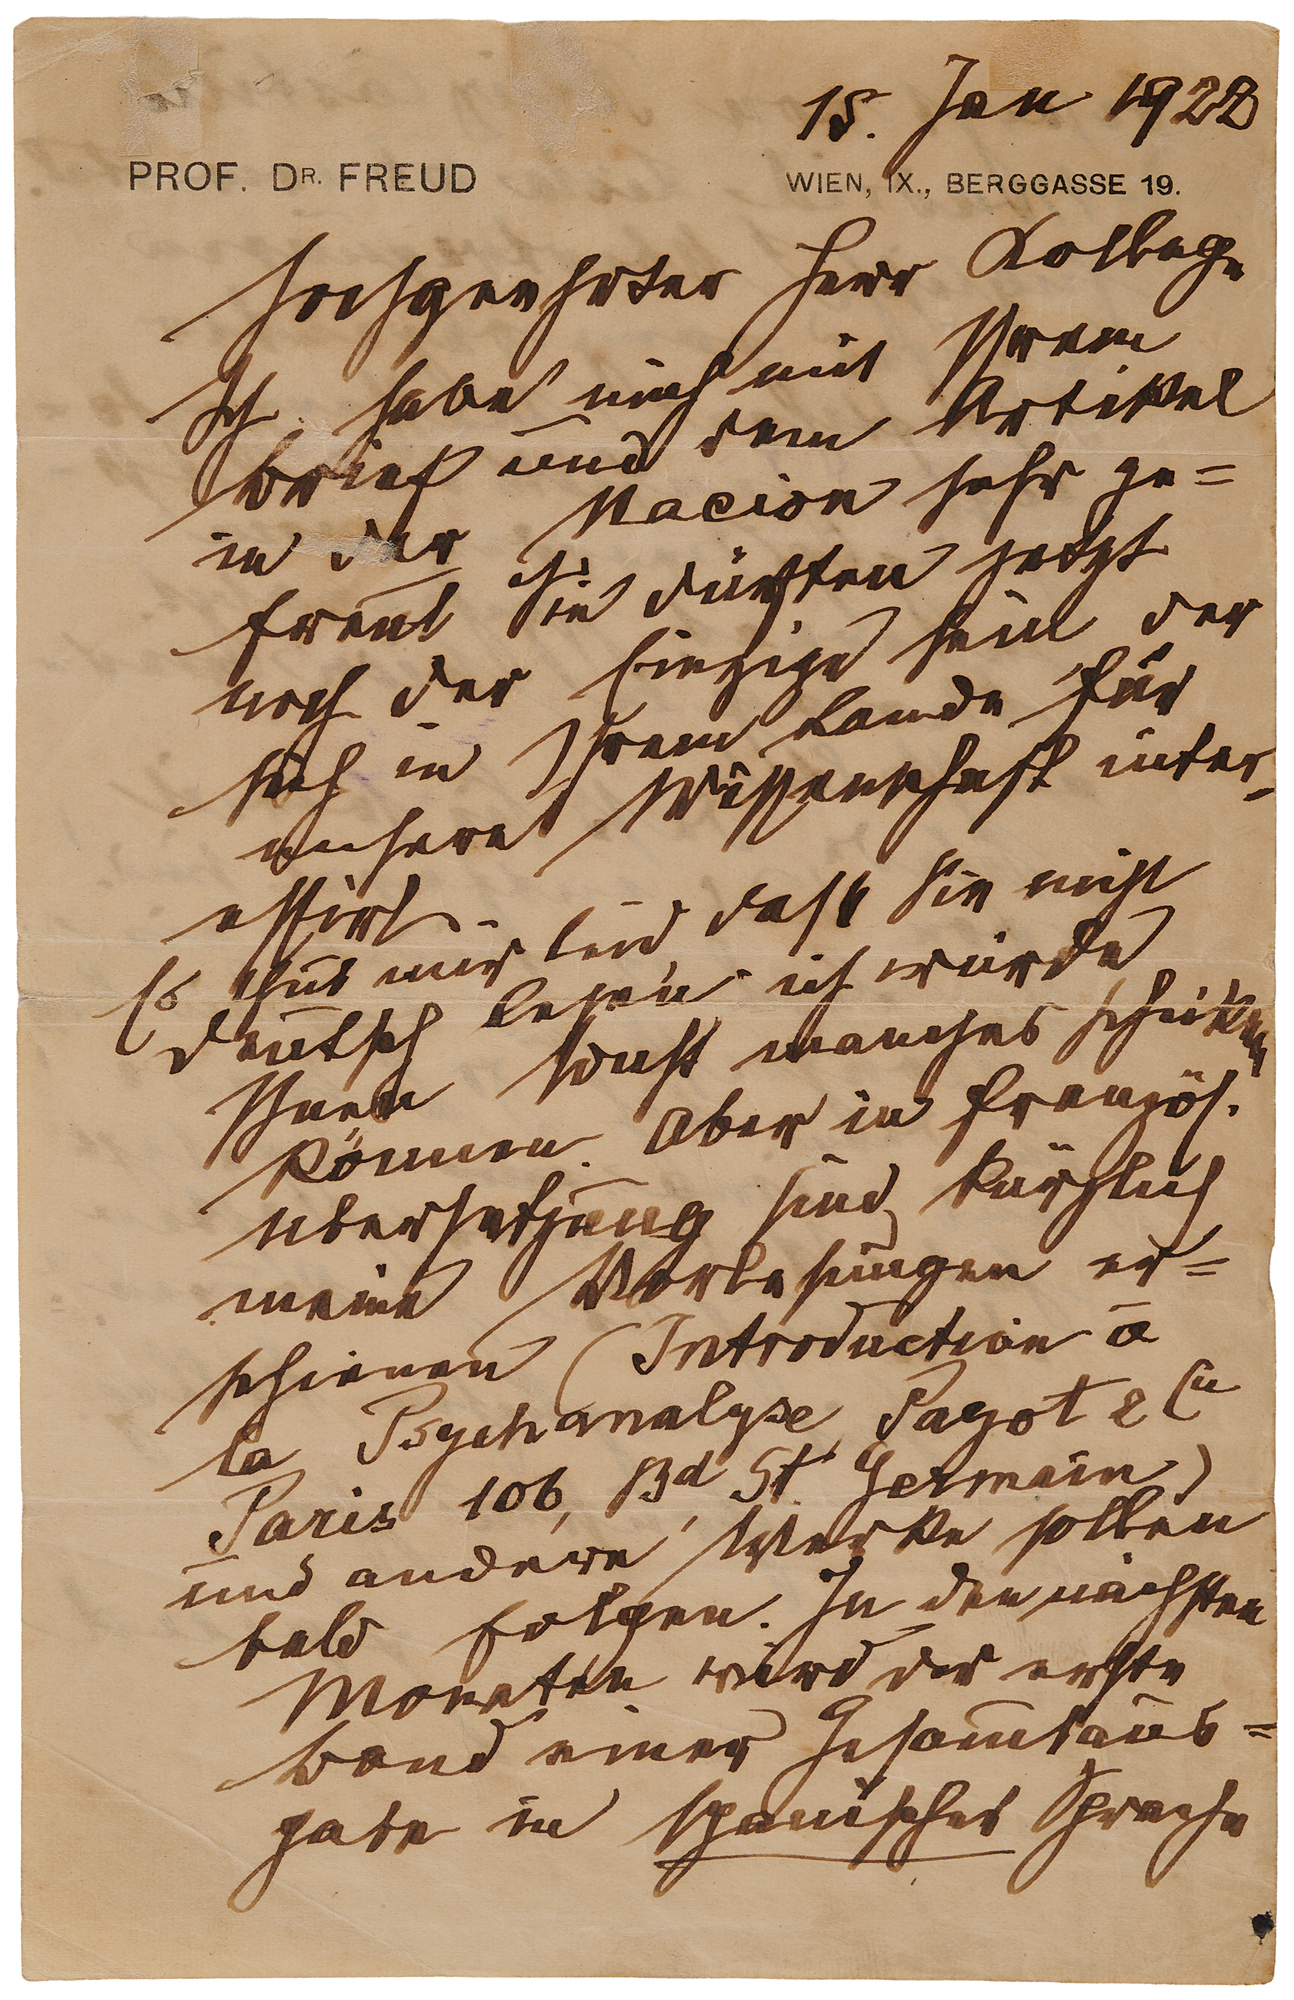 15. Jan 1922
PROF. DR. FREUD WIEN, IX., BERGGASSE 19.
Hochgeehrter Herr Kollege
Ich habe mich mit Ihrem
Brief und dem Artikel
in der Nacion sehr ge=
freut. Sie dürften jetzt
noch der Einzige sein der
sich in Ihrem Lande für
unsere Wissenschaft inter-
essirt.
Es thut mir leid, dass Sie nicht
deutsch lesen, ich würde
Ihnen sonst manches schicken
können. Aber in französ.
Übersetzung sind kürzlich
meine Vorlesungen er=
schienen (Introduction à
la Psychanalyse Payot & Cie
Paris 106, Bd St. Germain)
und andere Werke sollen
bald folgen. In den nächsten
Monaten wird der erste
Band einer Gesamtaus=
gabe in spanischer Sprache